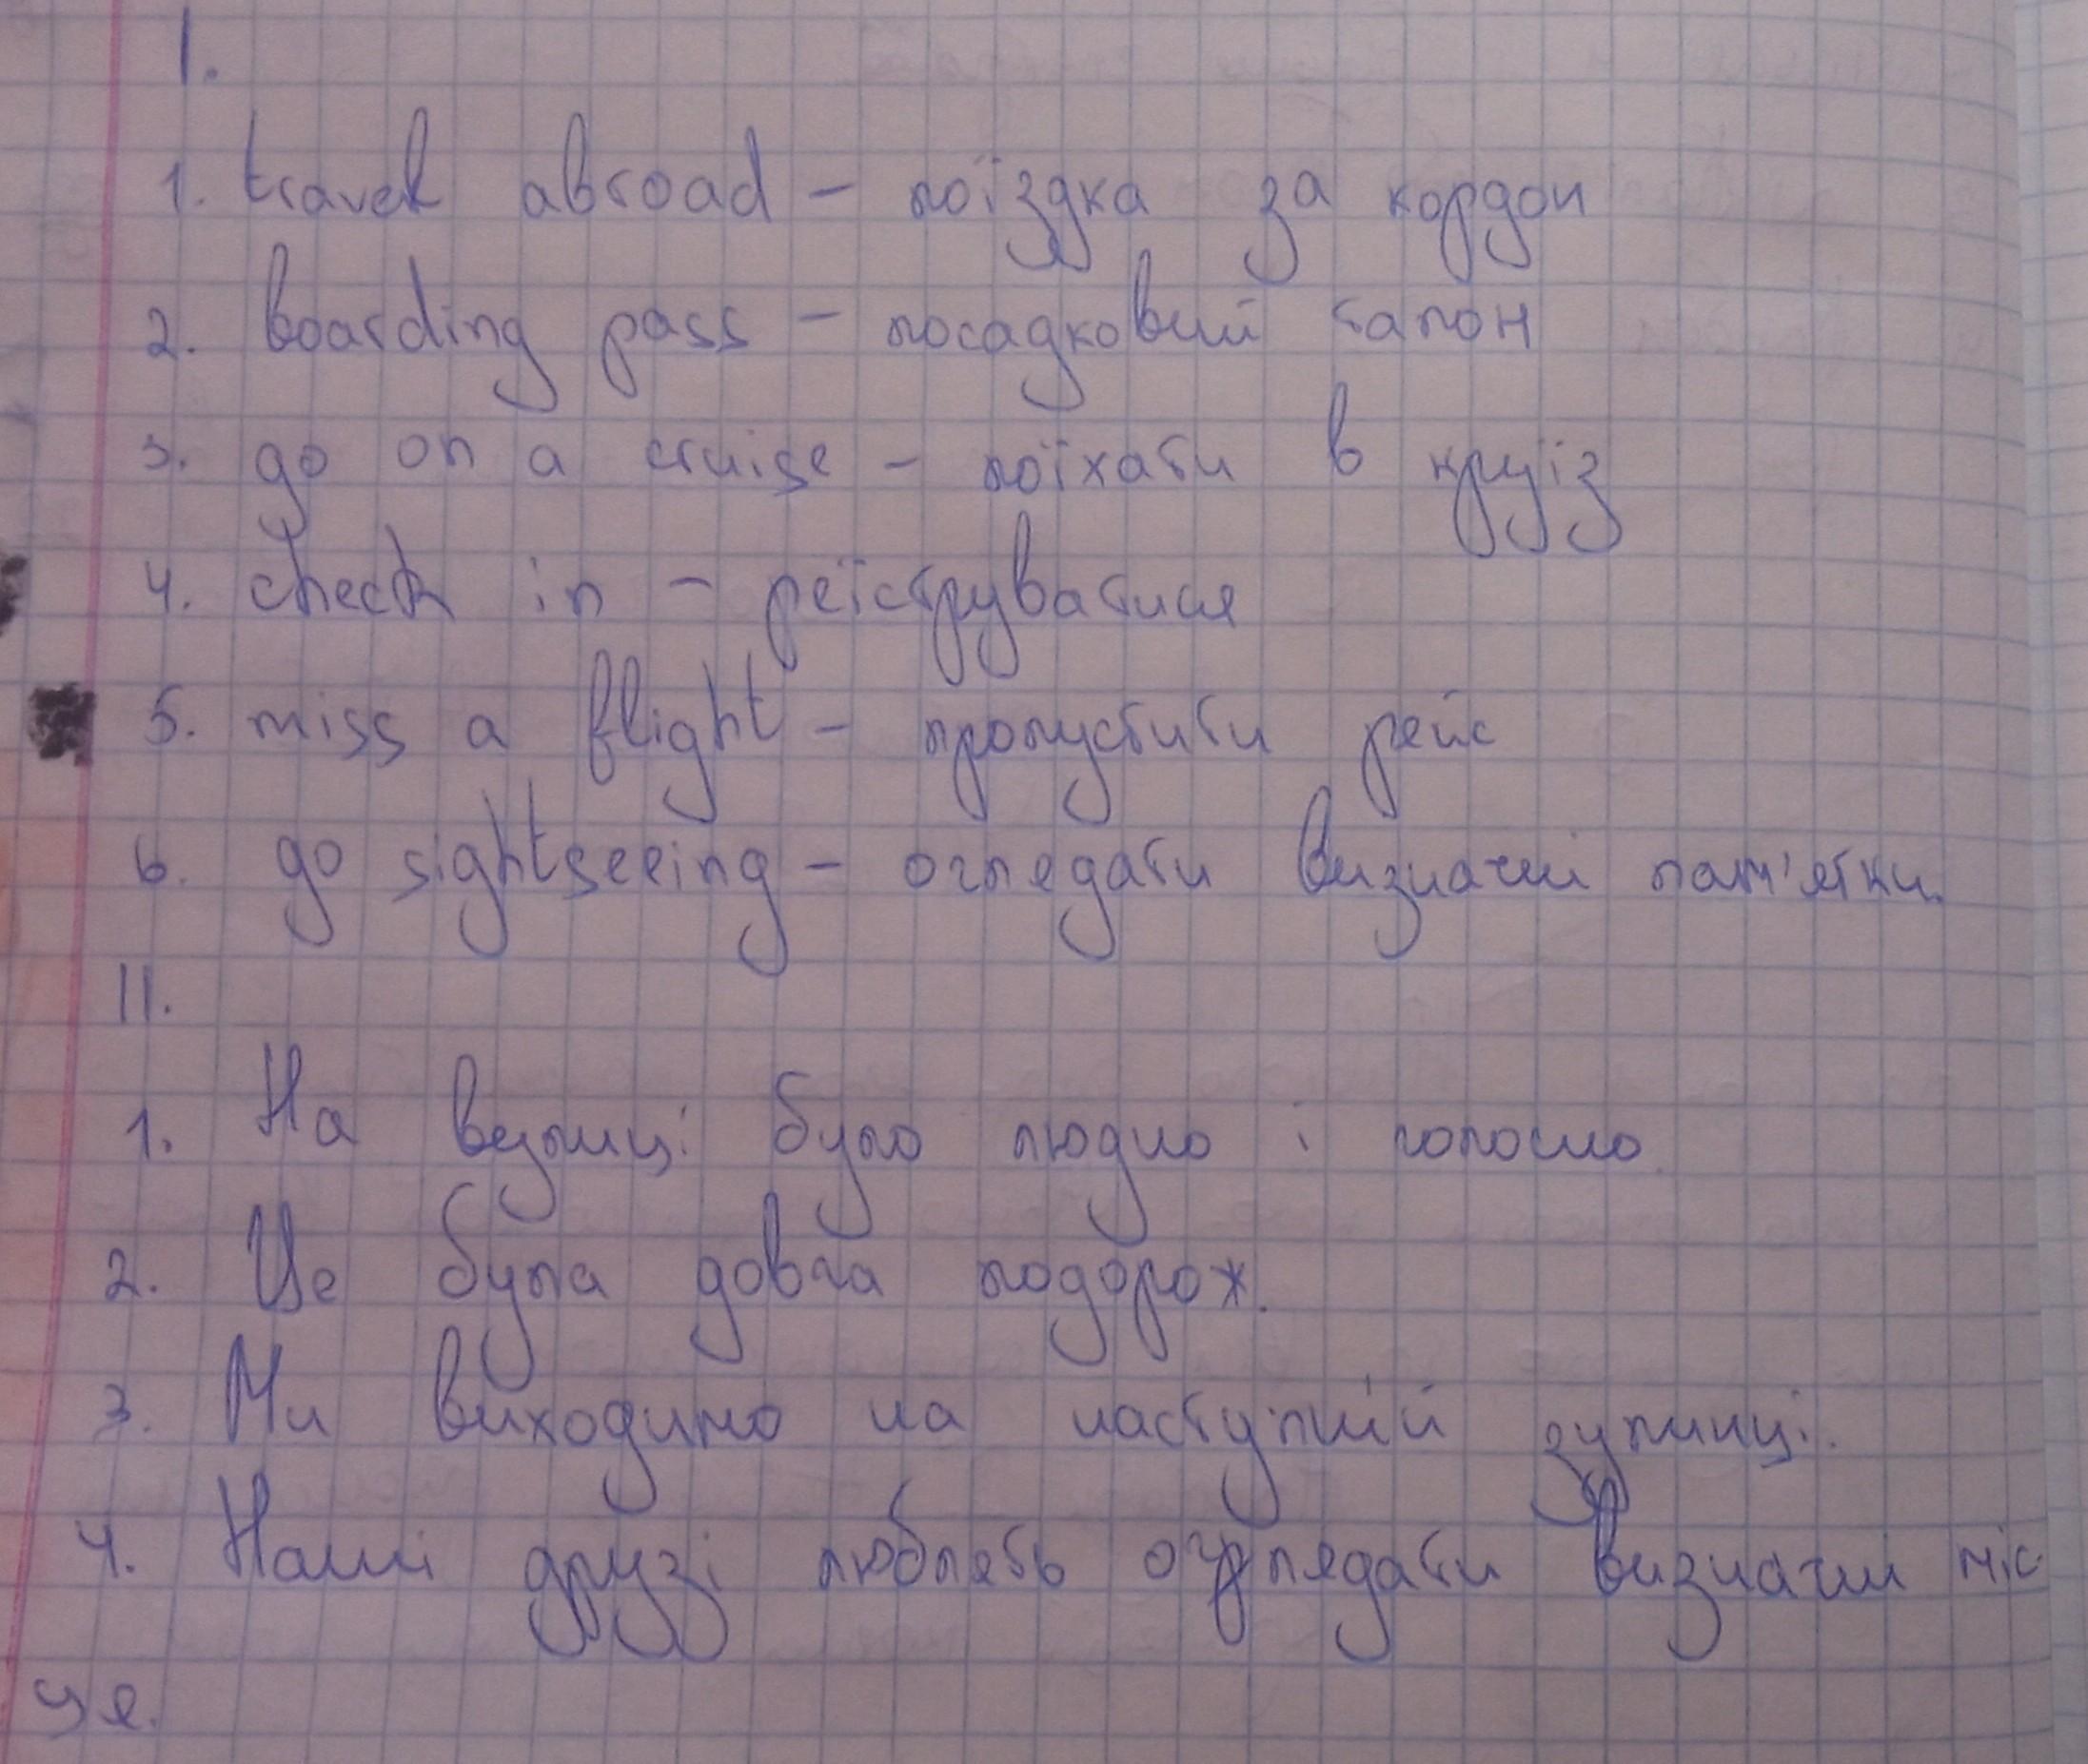 I.
1. travel abroad - поїздка за кордон
2. boarding pass - посадковий талон
3. go on a cruise - поїхати в круїз
4. check in - реїструватися
5. miss a flight - пропустити рейс
6. go sightseeing - оглядати визначні пам'ятки.
II.
1. На вулиці було людно і голосно.
2. Це була довга подорож.
3. Ми виходимо на наступній зупинці.
4. Наші друзі люблять оглядати визначні міс
ця.